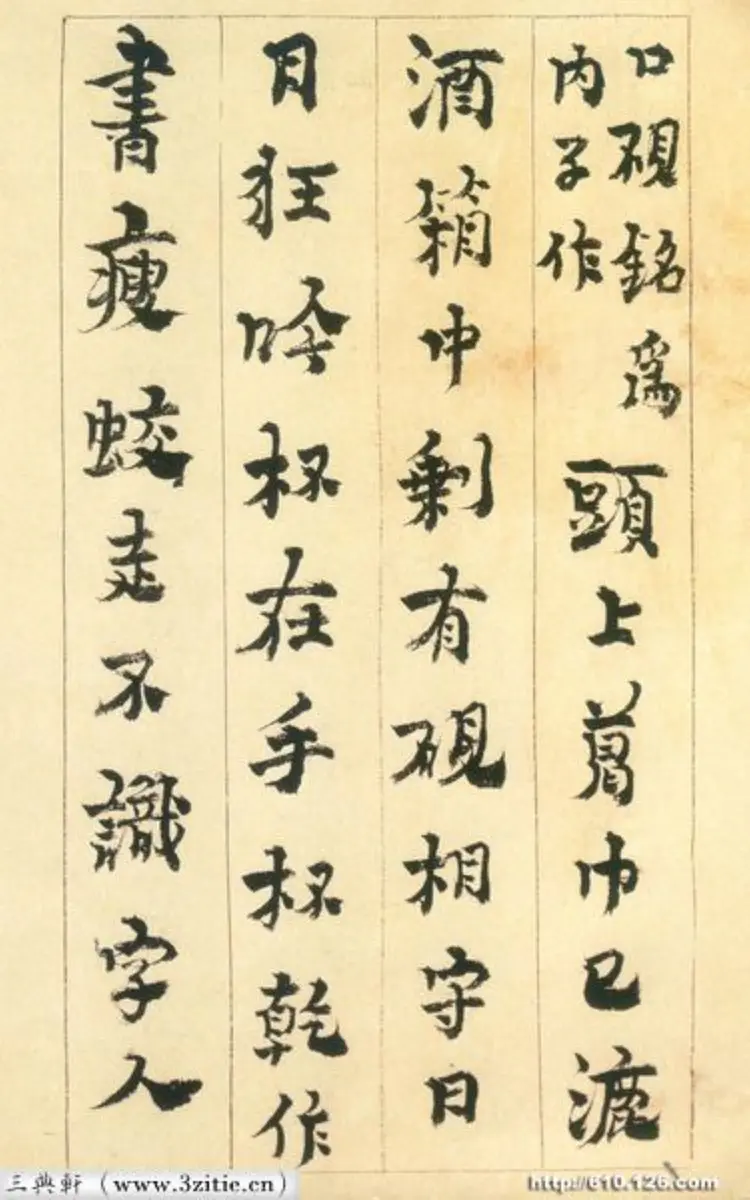 口硯銘為
内子作
頭上葛巾已漉
酒箱中剩有硯相守日
月狂吟杯在手杯乾作
書瘦蛟走不識字人
三典軒（www.3zitie.cn）
http://610.126.com